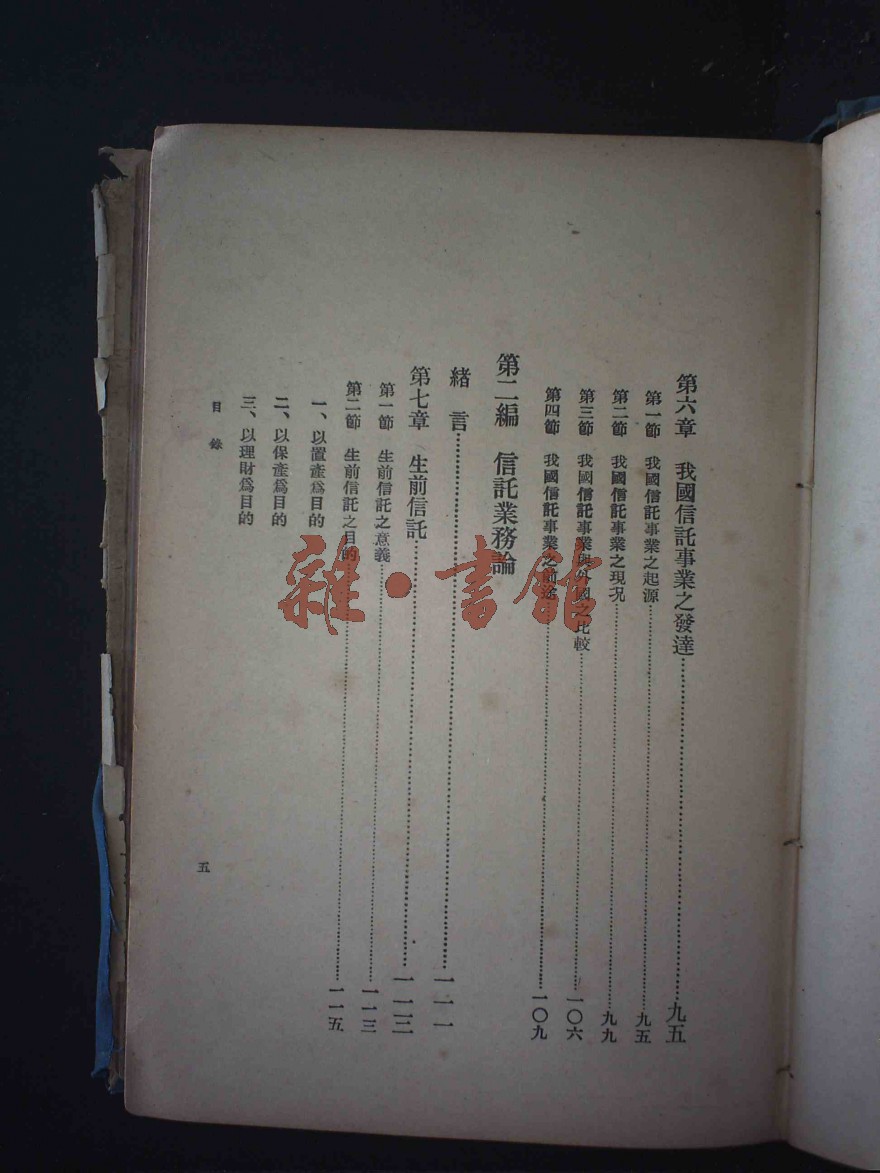 第六章　我國信託事業之發達……九五
第一節　我國信託事業之起源……九五
第二節　我國信託事業之現况……九九
第三節　我國信託事業與外國之比較……一〇六
第四節　我國信託事業之前途……一〇九
第二編　信託業務論
緒言……一一一
第七章　生前信託……一一三
第一節　生前信託之意義……一一三
第二節　生前信託之目的……一一五
一、以置產爲目的
二、以保產爲目的
三、以理財爲目的
目錄
五
雜·書館